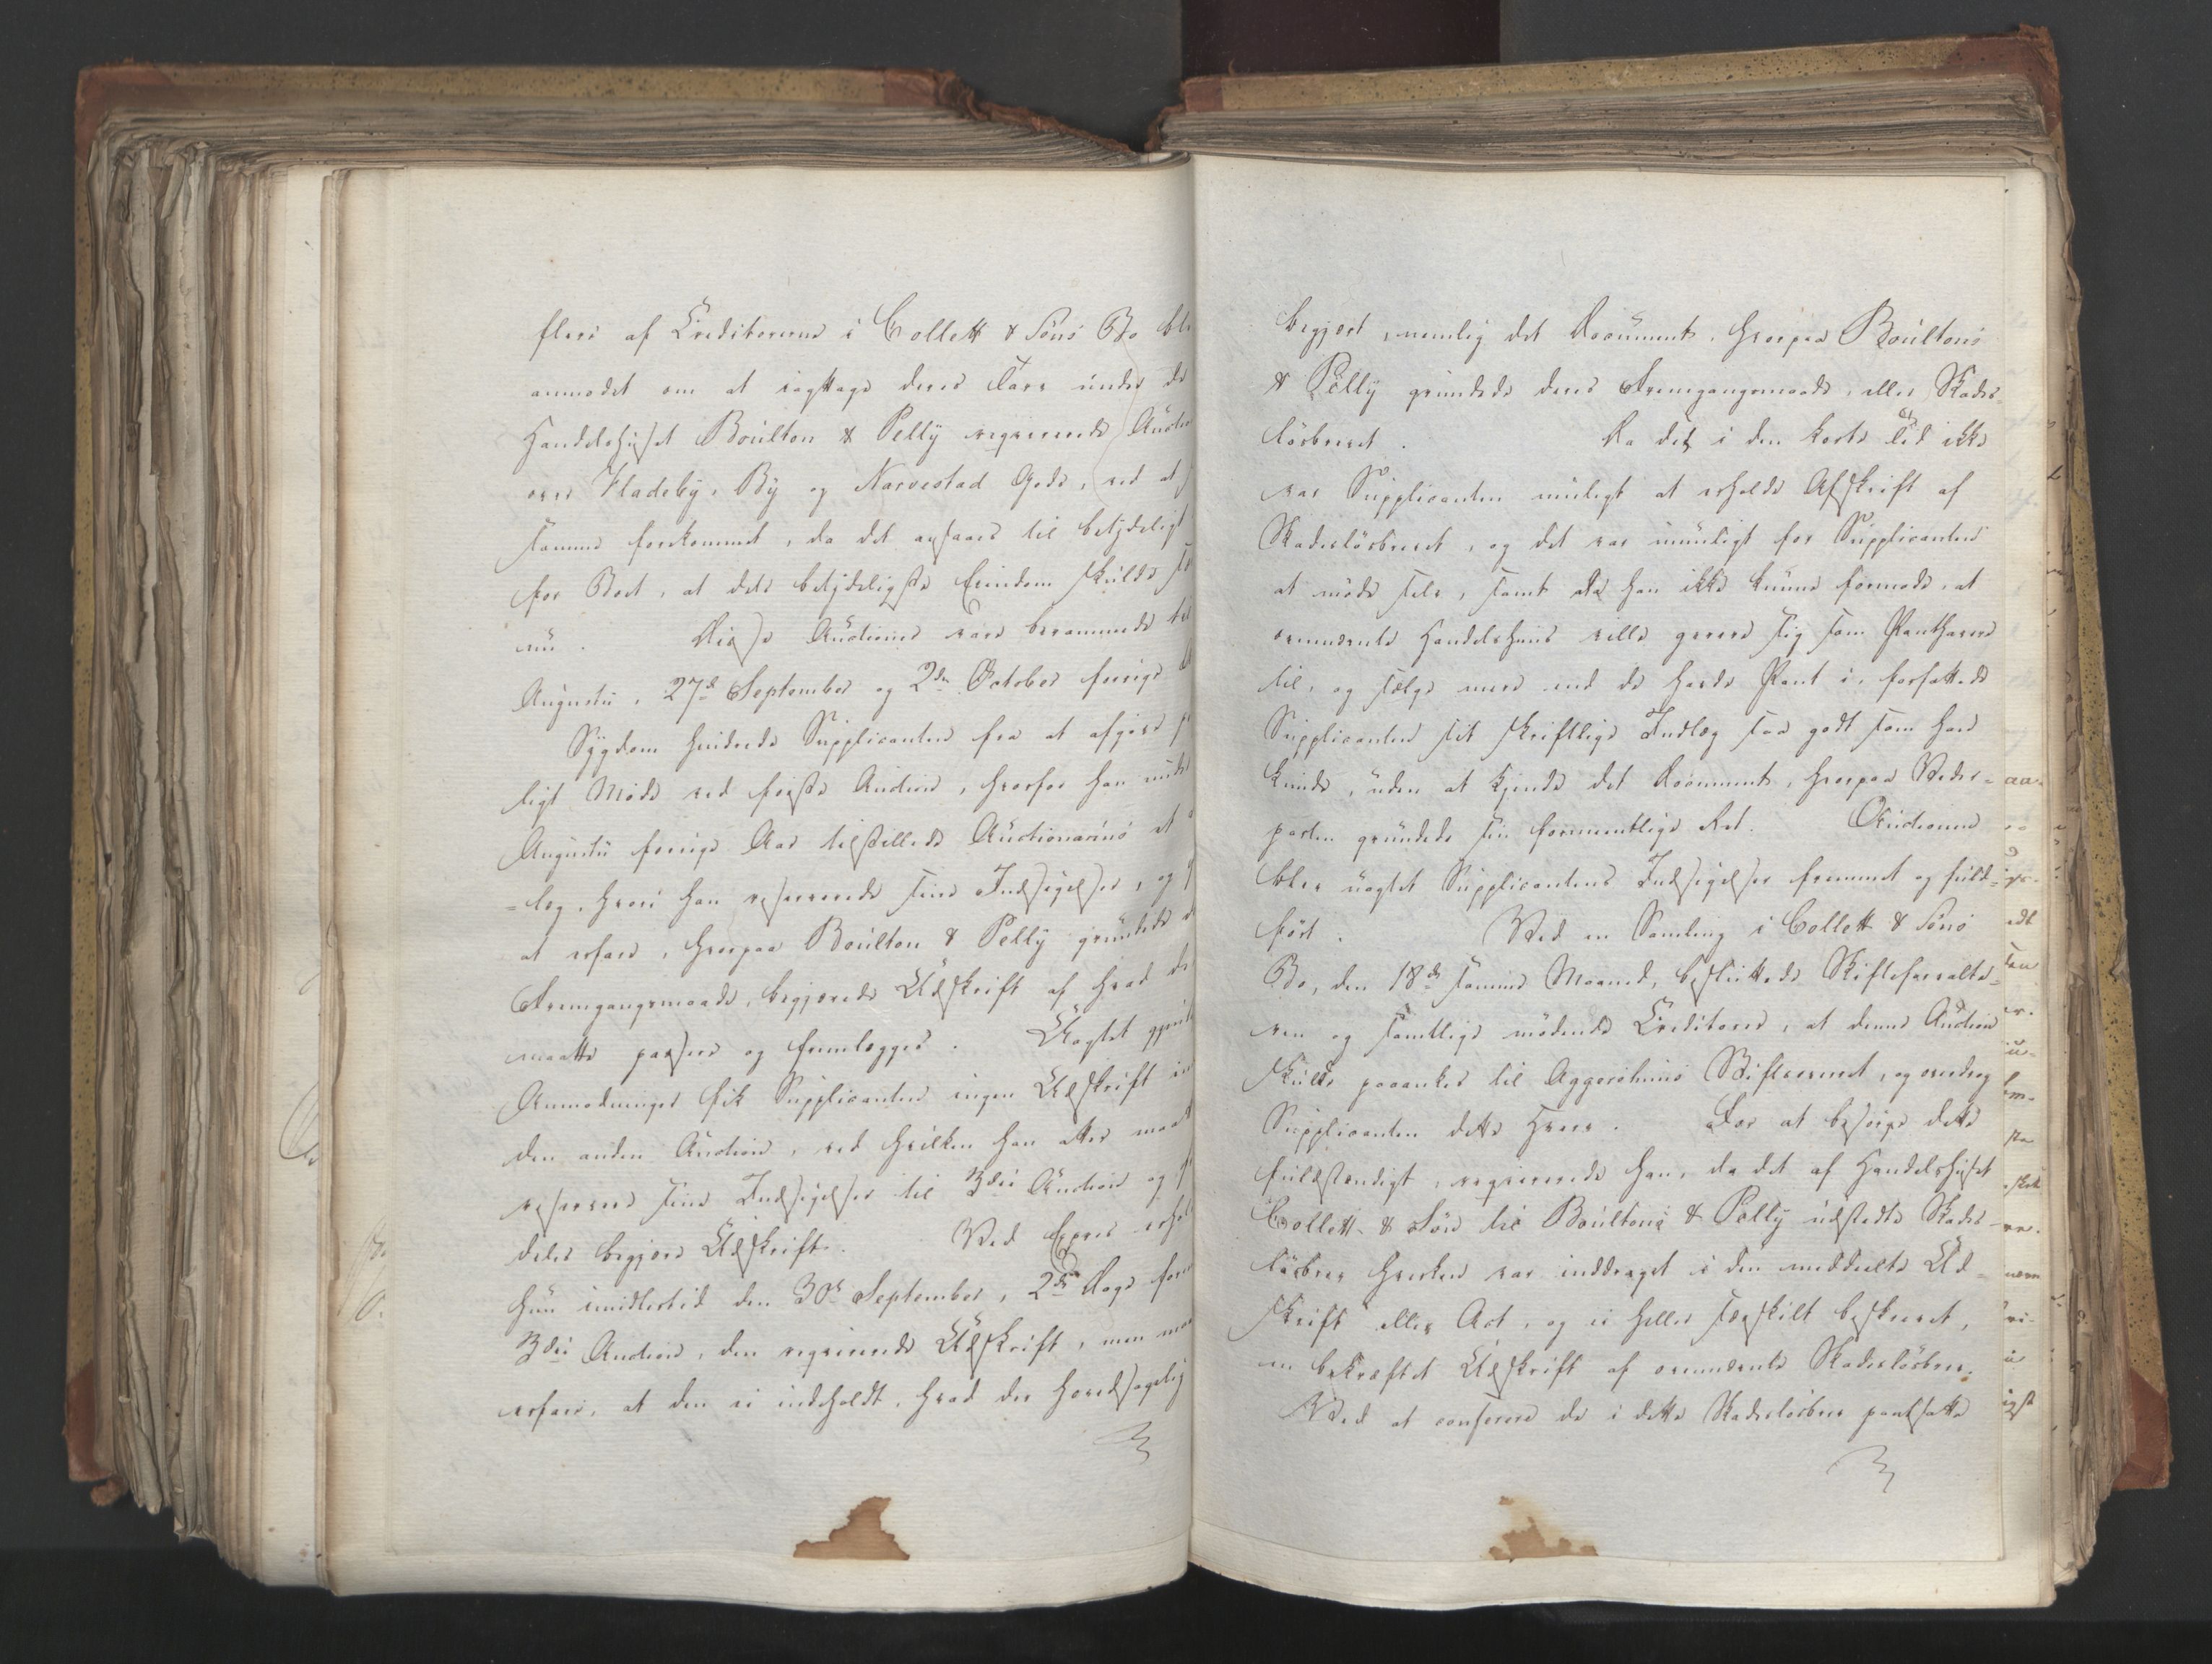 flere af Creditorerne i Collett & Søns Bo ble
anmodet om at iagttage deres Tarv under de
Handelshuset Boulton & Pelly reqvirerede Auctio
over Fladeby, By og Narvestad Gods, ved at
samme forekommet, da det ansaaes til betydeligt
for Boet, at dets betydeligste Eiendom skulde
nu. Disse Auctioner vare berammede til
Augustii, 27de September og 2den October forrige
Sygdom hindrede Supplicanten fra at afgive
ligt Møde ved første Auction, hvorfor han under
Augustii forrige Aar tilstillede Auctionarius et
-læg, hvori han reserverede sine Indsigelser, og
at erfare, hvorpaa Boulton & Pelly grundede
Fremgangsmaade, begjærede Udskrift af hvad der
maatte passere og fremlægges. Uagtet
Anmodninger fik Supplicanten ingen Udskrift
den anden Auction, ved hvilken han atter maat
reservere sine Indsigelser til 3die Auction og
deles begjære Udskrift. Ved Expres erholdt
han imidlertid den 30te September, 2de Dage foren
3die Auction, den reqvirerede Udskrift, men
erfare, at den ei indeholdt, hvad der hovedsagelig
begjært, nemlig det Document, hvorpaa Boultons
& Pelly grundede deres Fremgangsmaade, eller Skades-
løsbrevet. Da det i den korte Tid ikke
var Supplicanten muligt at erholde Afskrift af
Skadesløsbrevet, og det var umuligt for Supplicanten
at møde selv, samt da han ikke kunne formode, at
ommeldte Handelshuus vilde gerere sig som Panthavere
til, og sælge mere end de havde Pant i, forfattede
Supplicanten sit skriftlige Indlæg saa godt som han
kunde, uden at kjende det Document, hvorpaa Veder-
parten grundede sin formeentlige Ret. Auctionen
blev uagtet Supplicantens Indsigelser fremmet og fuld-
ført. Ved en Samling i Collett & Søns
Bo, den 18de samme Maaned, besluttede Skifteforvalte-
ren og samtlige mødende Creditorer, at denne Auction
skulde paaankes til Aggershuus Stiftsoverret, og overdrog
Supplicanten dette Hverv. For at besørge dette
fuldstændigt, reqvirerede han, da det af Handelshuset
Collett & Søn til Boultons & Pelly udstedte Skades-
løsbrev hverken var inddraget i den meddeelte Ud-
skrift eller Act, og ei heller særskilt beskrevet,
en bekræftet Udskrift af ommeldte Skadesløsbrev.
Ved at conferere de i dette Skadesløsbrev pantsatte